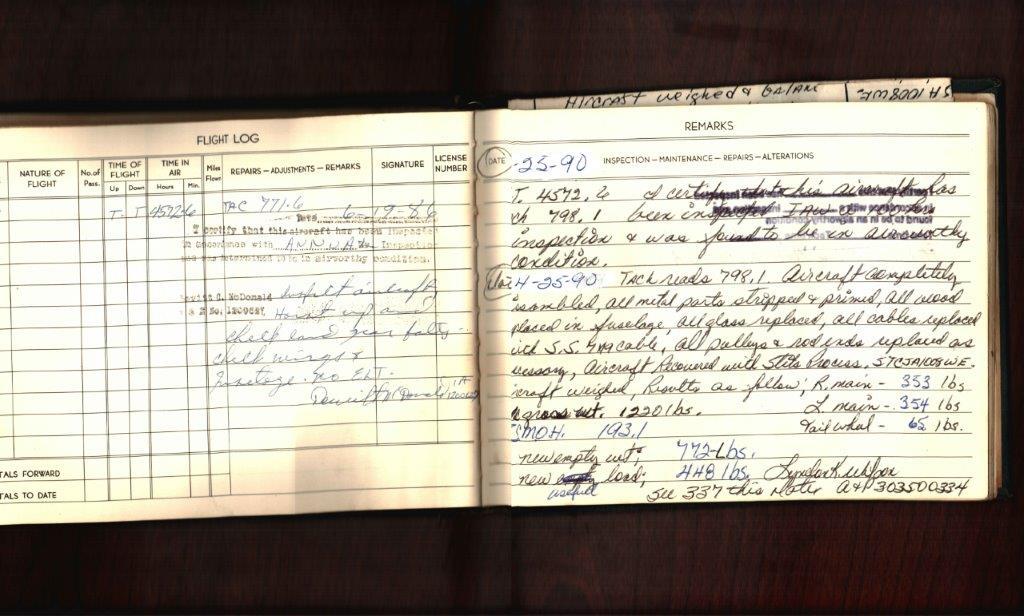 FLIGHT LOG
NATURE OF FLIGHT
No. of Pass.
TIME OF FLIGHT
Up Down
TIME IN AIR
Hours Min.
Miles Flown
REPAIRS — ADJUSTMENTS — REMARKS
SIGNATURE
LICENSE NUMBER
T. T. 4572.6 TAC 771.6
Date 6-19-86
I certify that this aircraft has been inspected
in accordance with ANNUAL Inspection
and was determined to be in airworthy condition.
McDonald
aircraft
up and
check land gear
check wings &
fuselage. no ELT.
TALS FORWARD
TALS TO DATE
Aircraft weighed &
REMARKS
DATE -25-90 INSPECTION — MAINTENANCE — REPAIRS — ALTERATIONS
T. 4572.6 I certify this aircraft has
ch 798.1 been inspected IAW
inspection & was found to be in airworthy
condition.
4-25-90 Tach reads 798.1. Aircraft completely
ssembled, all metal parts stripped & primed, all wood
placed in fuselage, all glass replaced, all cables replaced
with S.S. cable, all pulleys & rod ends replaced as
cessary, Aircraft Recovered with Stits Process,
craft weighed, Results as follow; R. main - 353 lbs
gross wt. 1220 lbs. L. main - 354 lbs
SMOH. 193.1 Tail wheel - 65 lbs.
new empty wt; 772 Lbs.
new useful load; 448 lbs
See 337 this date A&P 303500334